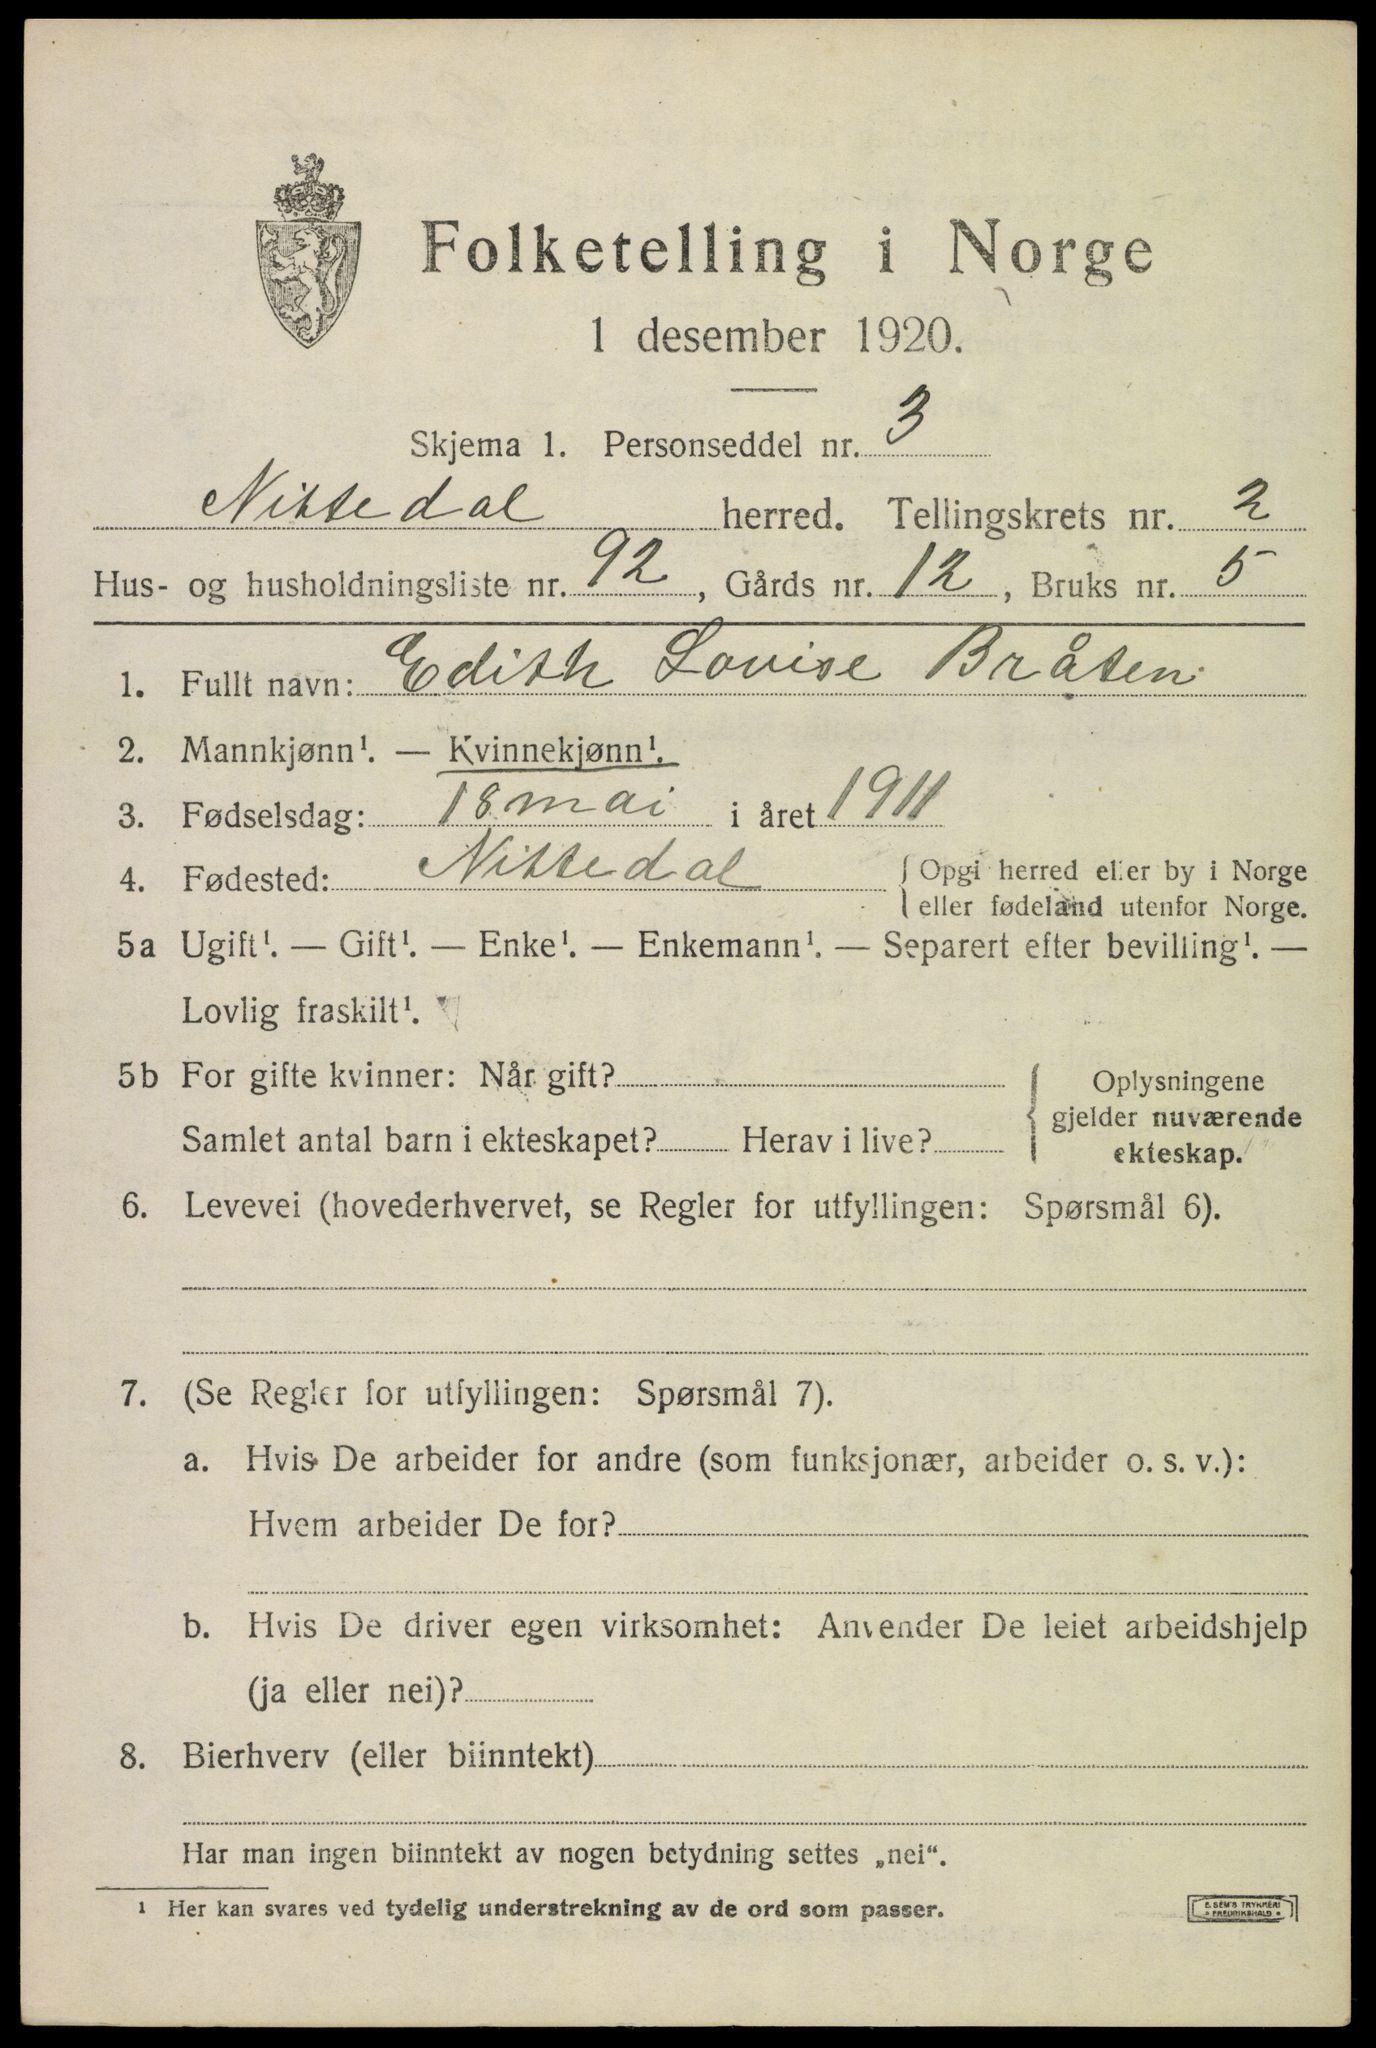 Folketelling i Norge
1 desember 1920.
Skjema 1. Personseddel nr. 3
Nittedal herred. Tellingskrets nr. 2
Hus- og husholdningsliste nr. 92, Gårds nr. 12, Bruks nr. 5
1. Fullt navn: Edith Lovise Bråten
2. Mannkjønn¹. — Kvinnekjønn¹.
3. Fødselsdag: 18 mai i året 1911
4. Fødested: Nittedal { Opgi herred eller by i Norge
eller fødeland utenfor Norge.
5a Ugift¹. — Gift¹. — Enke¹. — Enkemann¹. — Separert efter bevilling¹. —
Lovlig fraskilt¹.
5b For gifte kvinner: Når gift? { Oplysningene
gjelder nuværende
Samlet antal barn i ekteskapet? Herav i live?
ekteskap.
6. Levevei (hovederhvervet, se Regler for utfyllingen: Spørsmål 6).
7. (Se Regler for utfyllingen: Spørsmål 7).
a. Hvis De arbeider for andre (som funksjonær, arbeider o. s. v.):
Hvem arbeider De for?
b. Hvis De driver egen virksomhet: Anvender De leiet arbeidshjelp
(ja eller nei)?
8. Bierhverv (eller biinntekt)
Har man ingen biinntekt av nogen betydning settes „nei“.
¹ Her kan svares ved tydelig understrekning av de ord som passer.
E. SEM'S TRYKKERI
FREDRIKSHALD